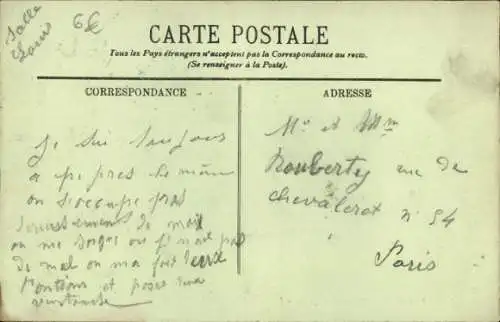 Salle
Louis
6€
CARTE POSTALE
Tous les Pays étrangers n'acceptent pas la Correspondance au recto.
(Se renseigner à la Poste).
CORRESPONDANCE
ADRESSE
Je sui toujours
a peu pres le même
on s'occupe pas
de moi
on me soigne ou
de mal on ma fait
et poses une
Mr et Mm
Rouberty rue de
chevaleret n° 54
Paris